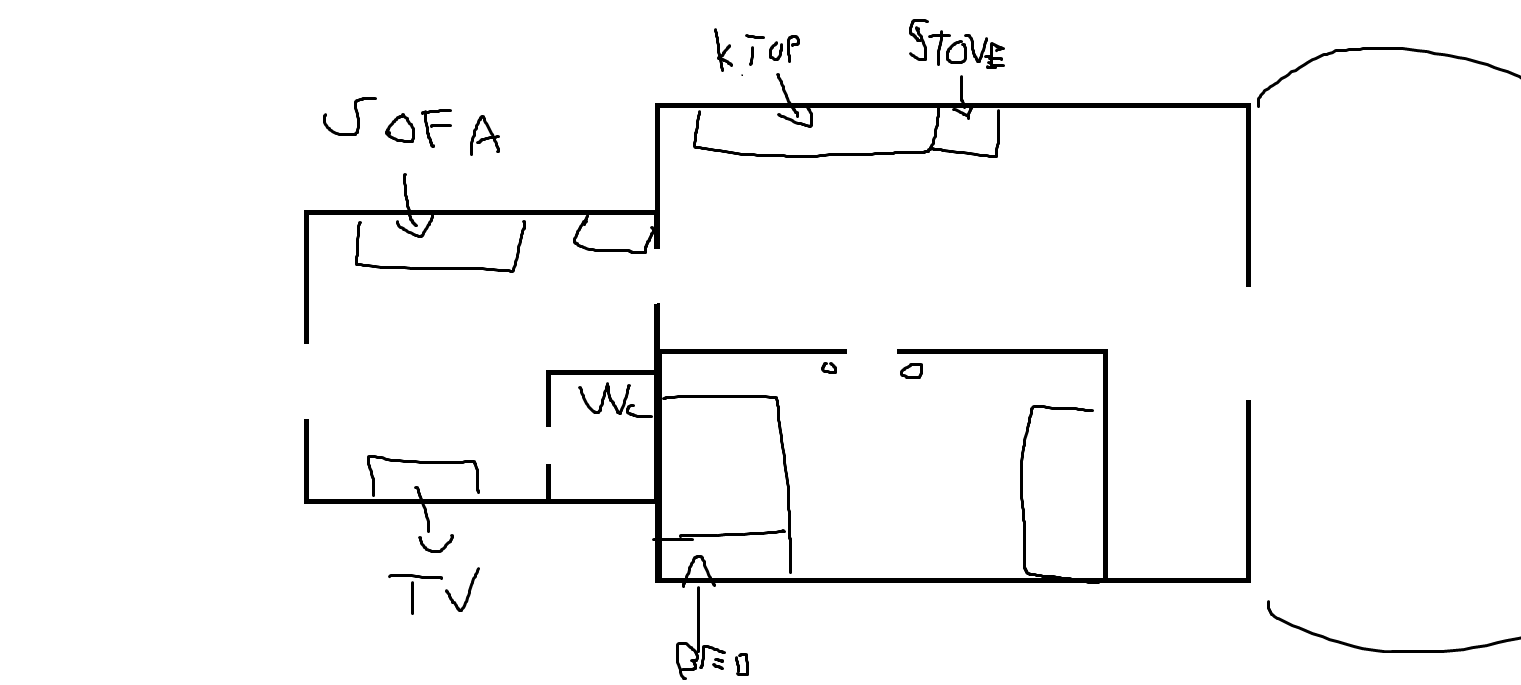 K TOP
STOVE
SOFA
WC
TV
BED